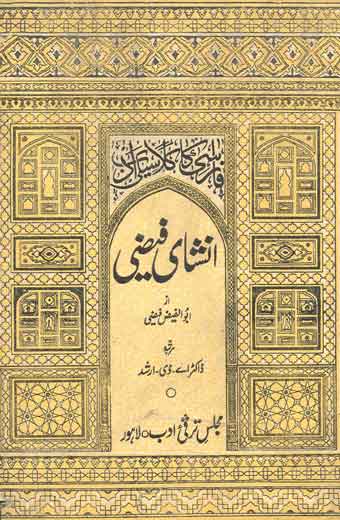 فارسی کا کلاسیکی ادب
انشای فیضی
از
ابوالفیض فیضی
مرتبہ
ڈاکٹر اے۔ ڈی۔ ارشد
مجلس ترقئ ادب ○ لاہور